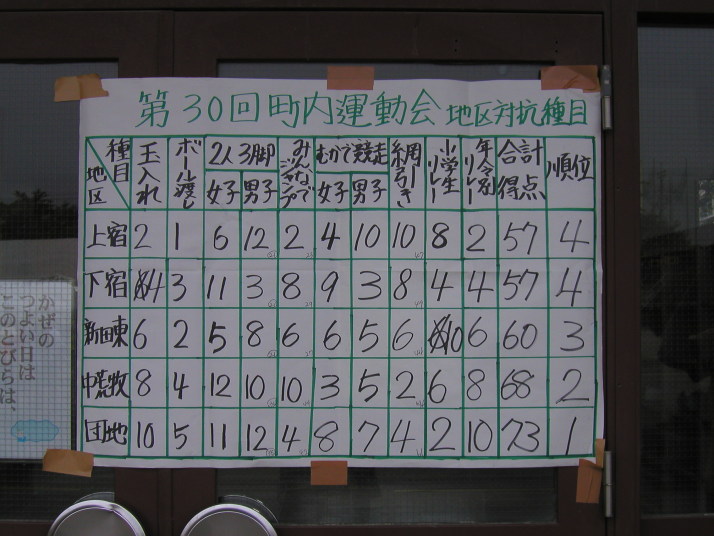 第30回町内運動会 地区対抗種目
種目 地区 玉入れ ボール渡し 2人3脚 女子 男子 みんなでジャンプ むかで競走 女子 男子 綱引き 小学生リレー 年令別リレー 合計得点 順位
上宿 2 1 6 12 2 4 10 10 8 2 57 4
下宿 4 3 11 3 8 9 3 8 4 4 57 4
新田東 6 2 5 8 6 6 5 6 10 6 60 3
中荒牧 8 4 12 10 10 3 5 2 6 8 68 2
団地 10 5 11 12 4 8 7 4 2 10 73 1
かぜの
つよい日は
このとびらは、